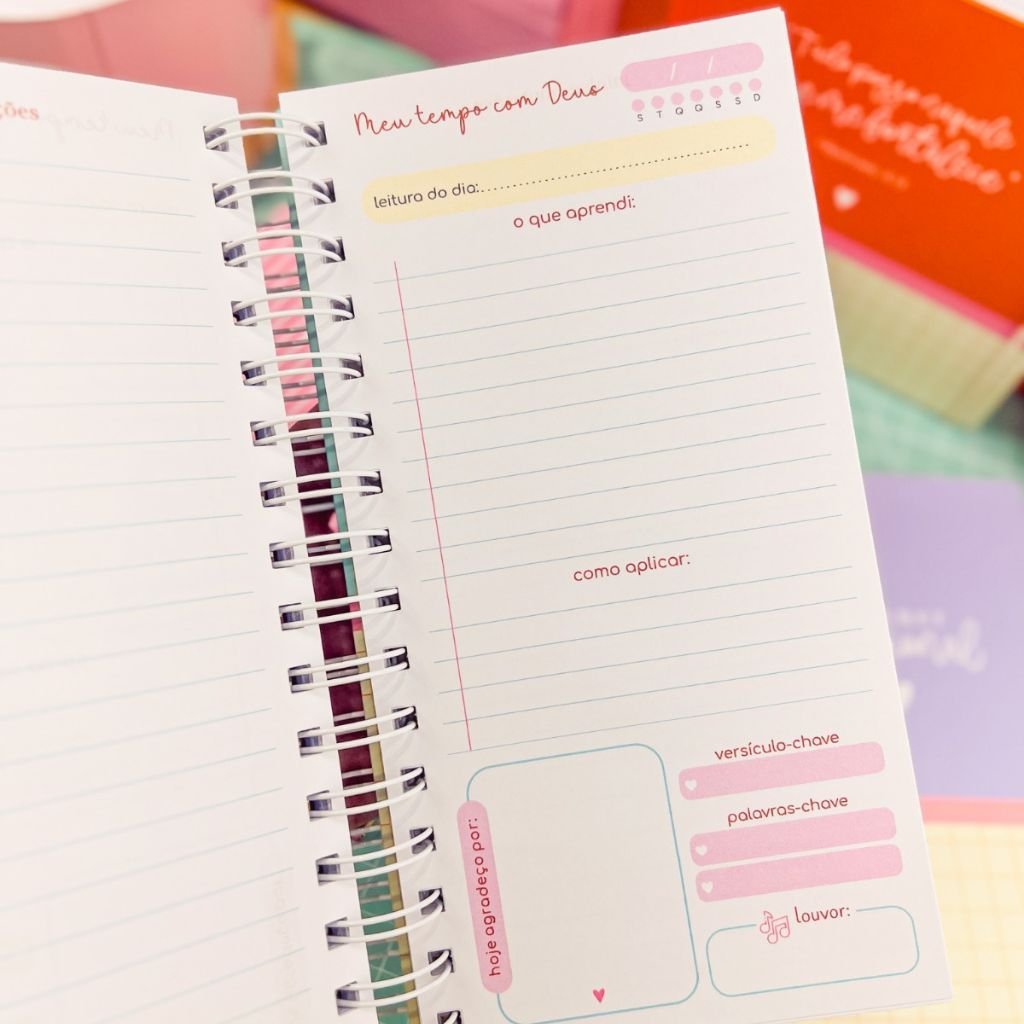 ções
Meu tempo com Deus
/ /
S T Q Q S S D
leitura do dia:
o que aprendi:
como aplicar:
versículo-chave
palavras-chave
hoje agradeço por:
louvor:
Tudo posso naquele
que me fortalece